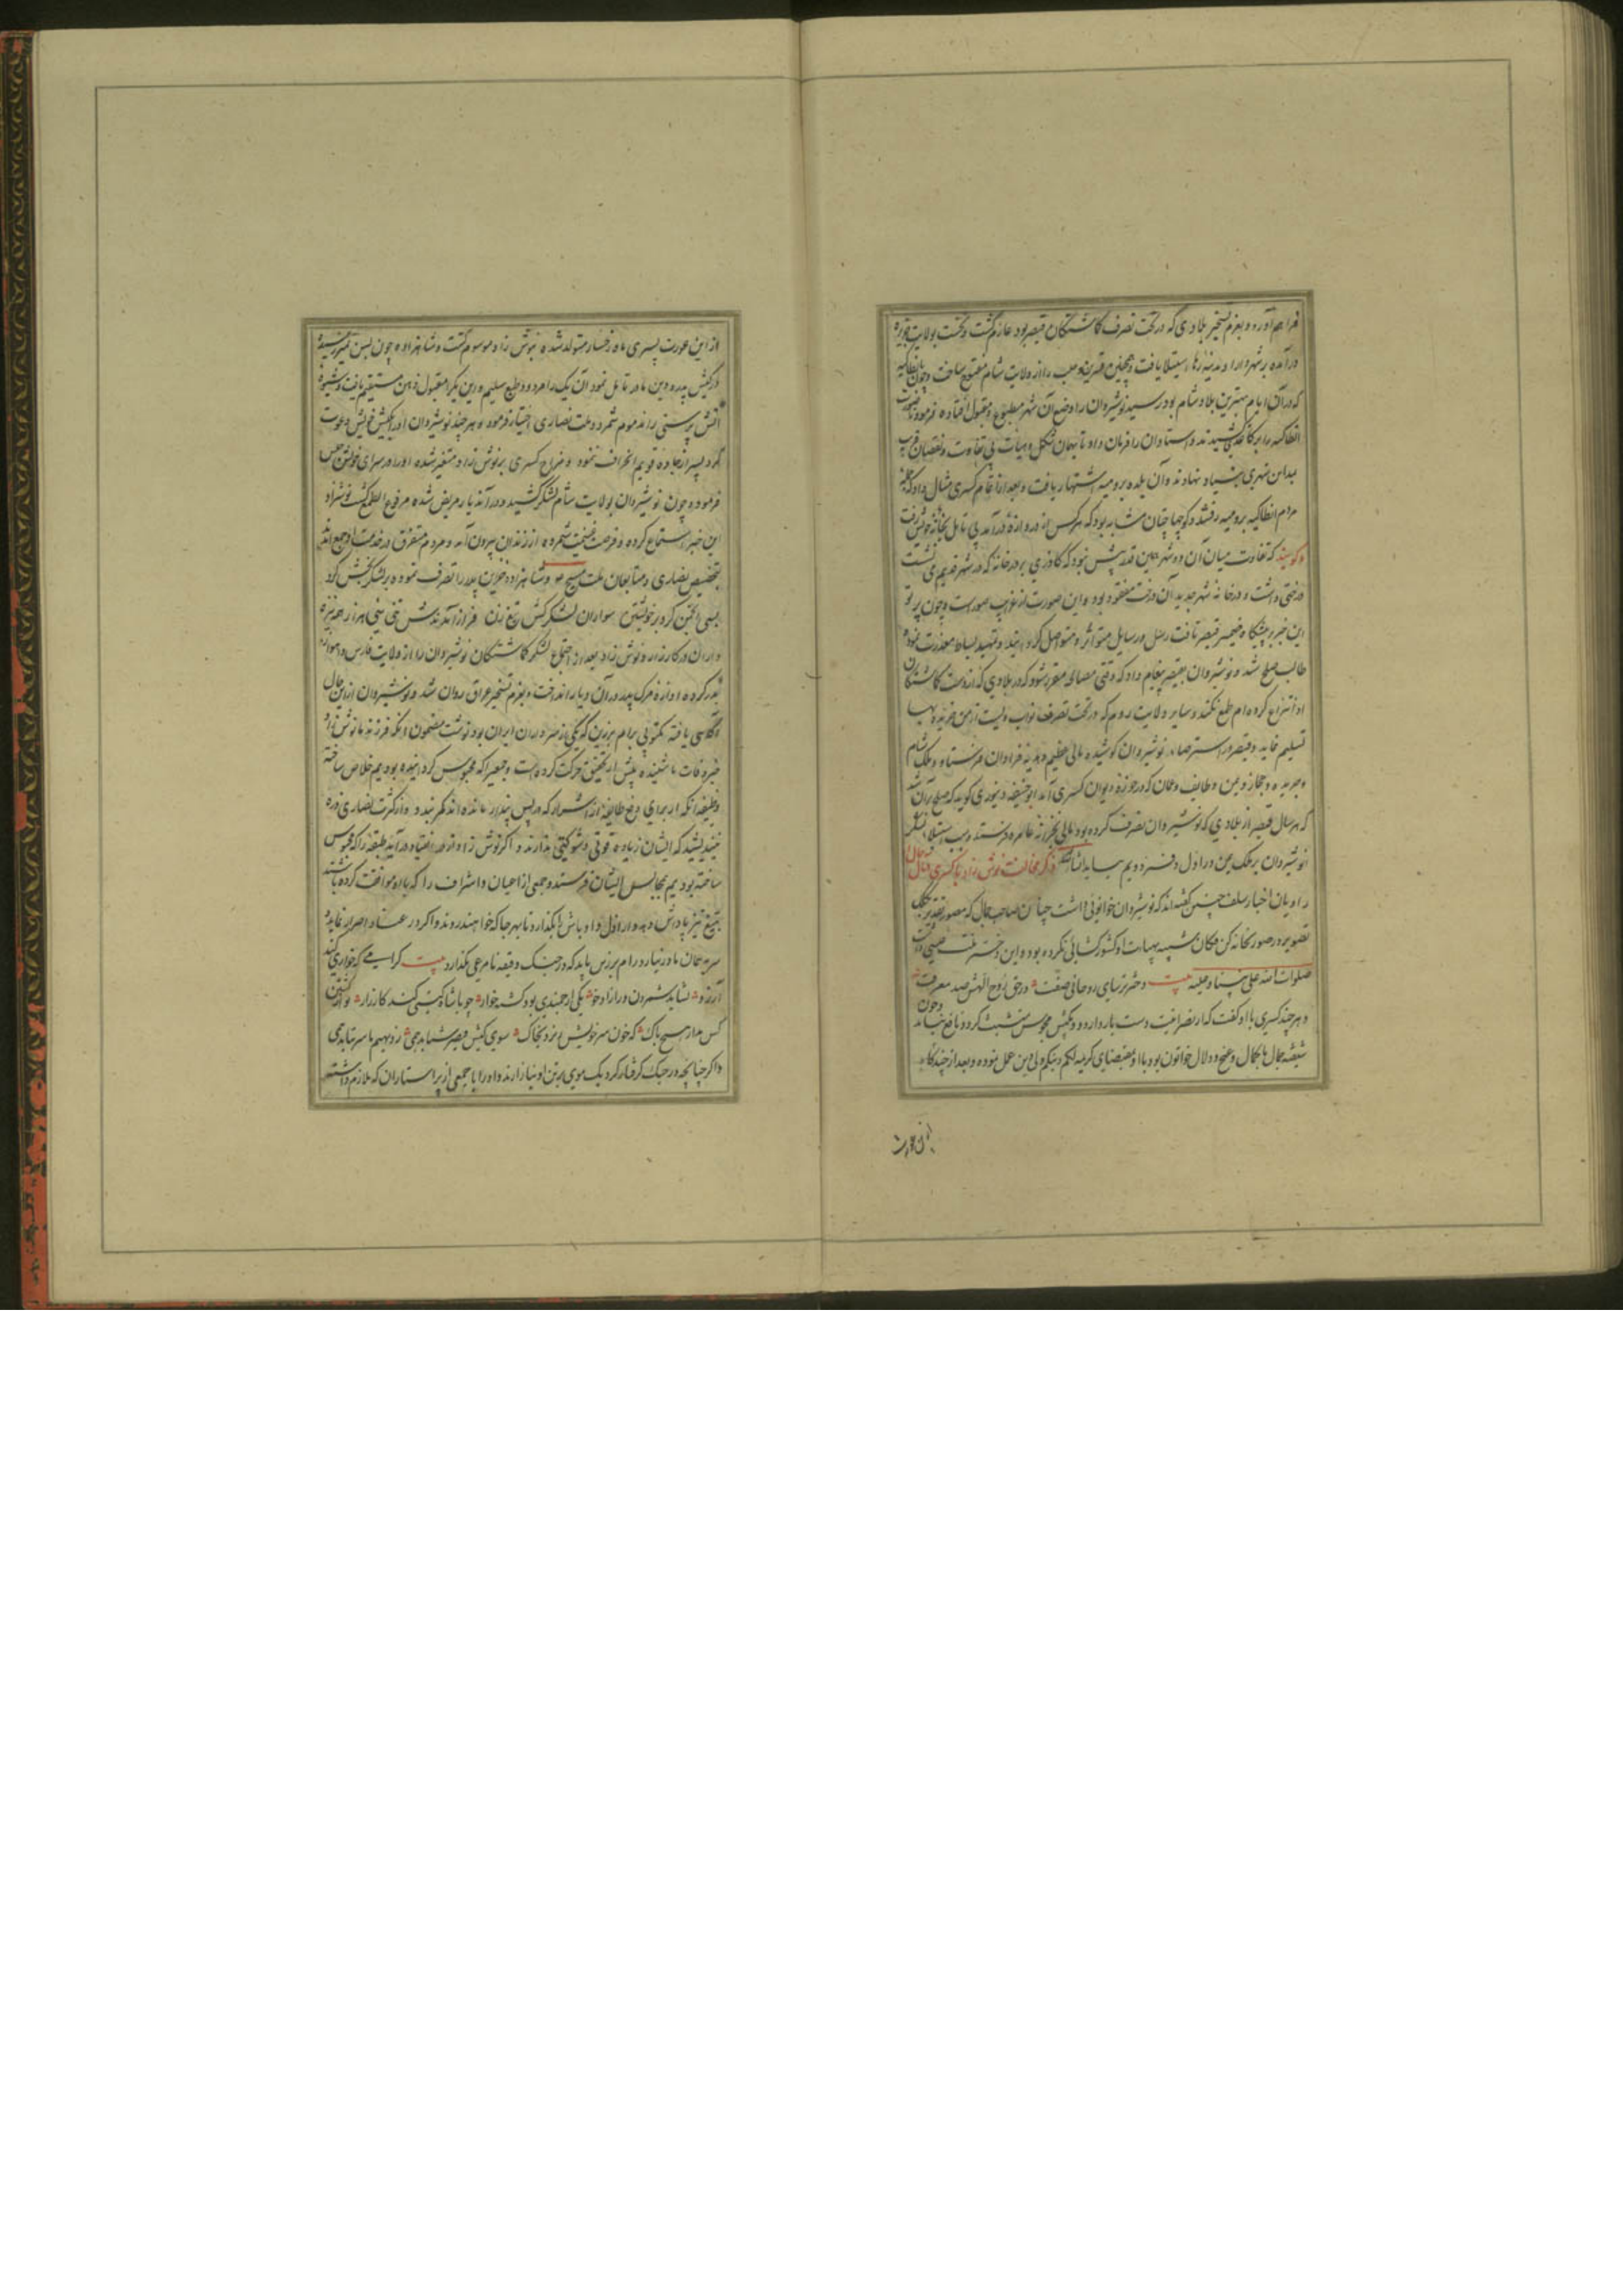 فراهم آورد و بعزم تسخیر بلادی که در تحت تصرف کماشتکان قیصر بود عازم کشت و نخست بولایت جزیره
درآمده بر شهر دارا و مدینه رها استیلا یافت و همچنین قنسرین و حلب را از ولایت شام مفتوح ساخت و چون انطاکیه
که در آن ایام بهترین بلاد شام بود رسید نوشیروان را وضع آن شهر مطبوع و مقبول افتاده فرمود تا صورت
انطاکیه را بر کاغذ کشیدند و استادان را فرمان داد تا بهمان شکل و هیات بی تفاوت و نقصان قریب
بمداین شهری بنیاد نهادند و آن بلده برومیه اشتهار یافت و بعد از اتمام کسری مثال داد که
مردم انطاکیه برومیه رفتند و کوچها چنان مشابه بود که هر کس از دروازه درآمد بی تامل بخانه خویش رفت
و کویند که تفاوت میان آن دو شهر همین قدر بیش نبود که کازری بر در خانه که در شهر قدیم می نشست
درختی داشت و در خانه شهر جدید آن درخت مفقود بود و این صورت از غرایب صور است و چون پرتو
این خبر بر پیشکاه ضمیر قیصر تافت رسل و رسایل متواتر و متواصل کردانید و تمهید بساط معذرت نموده
طالب صلح شد و نوشیروان بقیصر پیغام داد که وقتی مصالحه مقرر شود که در بلادی که از دست کماشتکان
او انتزاع کرده ام طمع نکند و سایر ولایت روم که در تحت تصرف نواب ویست از من خریده بها
تسلیم نماید و قیصر در استرضاء نوشیروان کوشیده مالی عظیم و هدیه فراوان فرستاد و ملک شام
و جزیره و حجاز و یمن و طایف و عمان که در حوزه دیوان کسری آمد ابو حنیفه دینوری کوید که صلح بر آن شد
که هر سال قیصر از بلادی که نوشیروان تصرف کرده بود مالی بخزانه عامره فرستد و سبب استیلاء لشکر
انوشیروان بر ملک یمن در اول دفتر دویم بیاید انشاالله ذکر مخالفت نوش زاد با کسری و مآل حال
راویان اخبار سلف چنین کفته اند که نوشیروان خواتونی داشت چنان صاحب جمال که مصور تقدیر بکلک
تصویر در صورتخانه کن فکان شبیه بهیات او کشور کشائی نکرده بود و این دختر ملت مسیحی داشت
صلوات الله علی نبینا و علیه بیت دختر ترسای روحانی صفت در حق روح اللهش صد معرفت
و هر چند کسری با او کفت که از نصرانیت دست باز دارد و بکیش مجوس متشبث کردد نافع نیامد و چون
شیفته جمال با کمال و غنج و دلال خواتون بود با او بمقتضای کریمه لکم دینکم ولی دین عمل نموده و بعد از چندکاه
از این عورت
از این عورت پسری ماه رخسار متولد شده بنوش زاد موسوم کشت و شاهزاده چون بسن تمیز رسید
در کیش پدر و دین مادر تامل نمود آن یک را مردود طبع سلیم و این یک را مقبول ذهن مستقیم یافت و شیوه
آتش پرستی را مذموم شمرد و ملت نصاری اختیار فرمود و هر چند نوشیروان او را بکیش خویش دعوت
کرد پسر از جاده قویم انحراف ننمود و مزاج کسری بر نوش زاد متغیر شده او را در سرای خویش حبس
فرمود و چون نوشیروان بولایت شام لشکر کشید و در آن دیار مریض شده مرجوع الطمع کشت نوشزاد
این خبر استماع کرده و فرصت غنیمت شمرده از زندان بیرون آمد و مردم متفرق در خدمت او جمع آمدند
بتخصیص نصاری و متابعان ملت مسیح و شاهزاده خزاین پدر را تصرف نموده بر لشکر بخش کرد
بسی انجمن کرد بر خویشتن سواران لشکرکش تیغ زن فراز آمدندش تنی سی هزار همه نیزه
داران در کارزار و نوش زاد بعد از اجتماع لشکر کماشتکان نوشیروان را از ولایت فارس و اهواز
بدر کرده آوازه مرک پدر در آن دیار انداخت و بعزم تسخیر عراق روان شد و نوشیروان از این حال
آکاهی یافته مکتوبی برام برزین که یکی از سرداران ایران بود نوشت مضمون آنکه فرزند ما نوش زاد
خبر وفات ما شنیده پیش از تحقیق حرکت کرده است و جمعی را که محبوس کردانیده بودیم خلاص ساخته
وظیفه آنکه از برای دفع طایفه از اشرار که در پس پندار مانده اند کمر بندد و از کثرت نصاری ذره
نیندیشید که ایشان زیاده قوتی و شوکتی ندارند و اکر نوش زاد از در انقیاد درآید طبقه را که محبوس
ساخته بودیم بمجالس ایشان فرستد و جمعی از اعیان و اشراف را که با او موافقت کرده باشند
بتیغ تیز پاداش دهد و اراذل و اوباش را بکذارد تا بهر جا که خواهند روند و اکر در عناد اصرار نماید
سر بفرمان ما در نیارد رام برزین باید که در جنک دقیقه نامرعی نکذارد بیت کرامی که خواری کند
آرزو نشاید شمردن ورا زادخو یکی ارجمندی بود کشته خوار چو با شاه کیتی کند کارزار تو از کشتن
کس مدار هیچ باک که خون سر خویش ریزد بخاک سوی کیش قیصر شتابد همی ز دیهیم ما سر بتابد همی
و اکر چنانچه در جنک کرفتار کردد یک موی بر تن او نیازارند و او را با جمعی از پرستاران که ملازم داشته